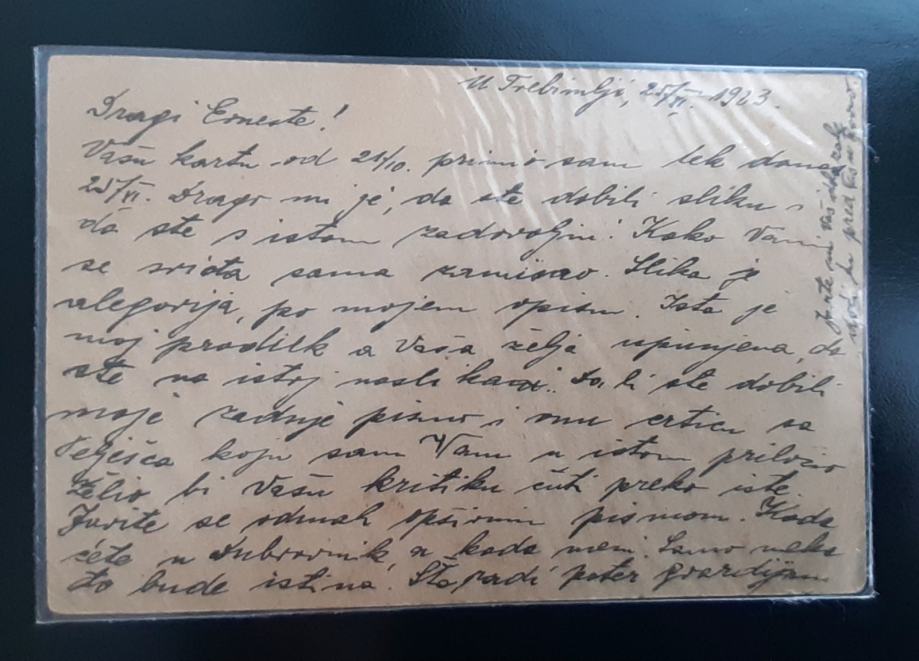 U Trebimlji, 25/XI. 1923.
Dragi Erneste!
Vašu kartu od 21/10. primio sam tek danas
25/XI. Drago mi je, da ste dobili sliku i
da ste s istom zadovoljni. Kako Vam
se sviđa sama zamisao. Slika je
alegorija, po mojem opisu. Ista je
moj produkt a Vaša želja ispunjena, da
ste na istoj naslikani. Da li ste dobili
moje zadnje pismo i mu crticu sa
koju sam Vam u istom priložio
Želio bi Vašu kritiku čuti preko iste.
Javite se odmah opširnim pismom. Kada
ćete u Dubrovnik a kada meni. Samo neka
to bude istina. Šta radi pater gvardijan